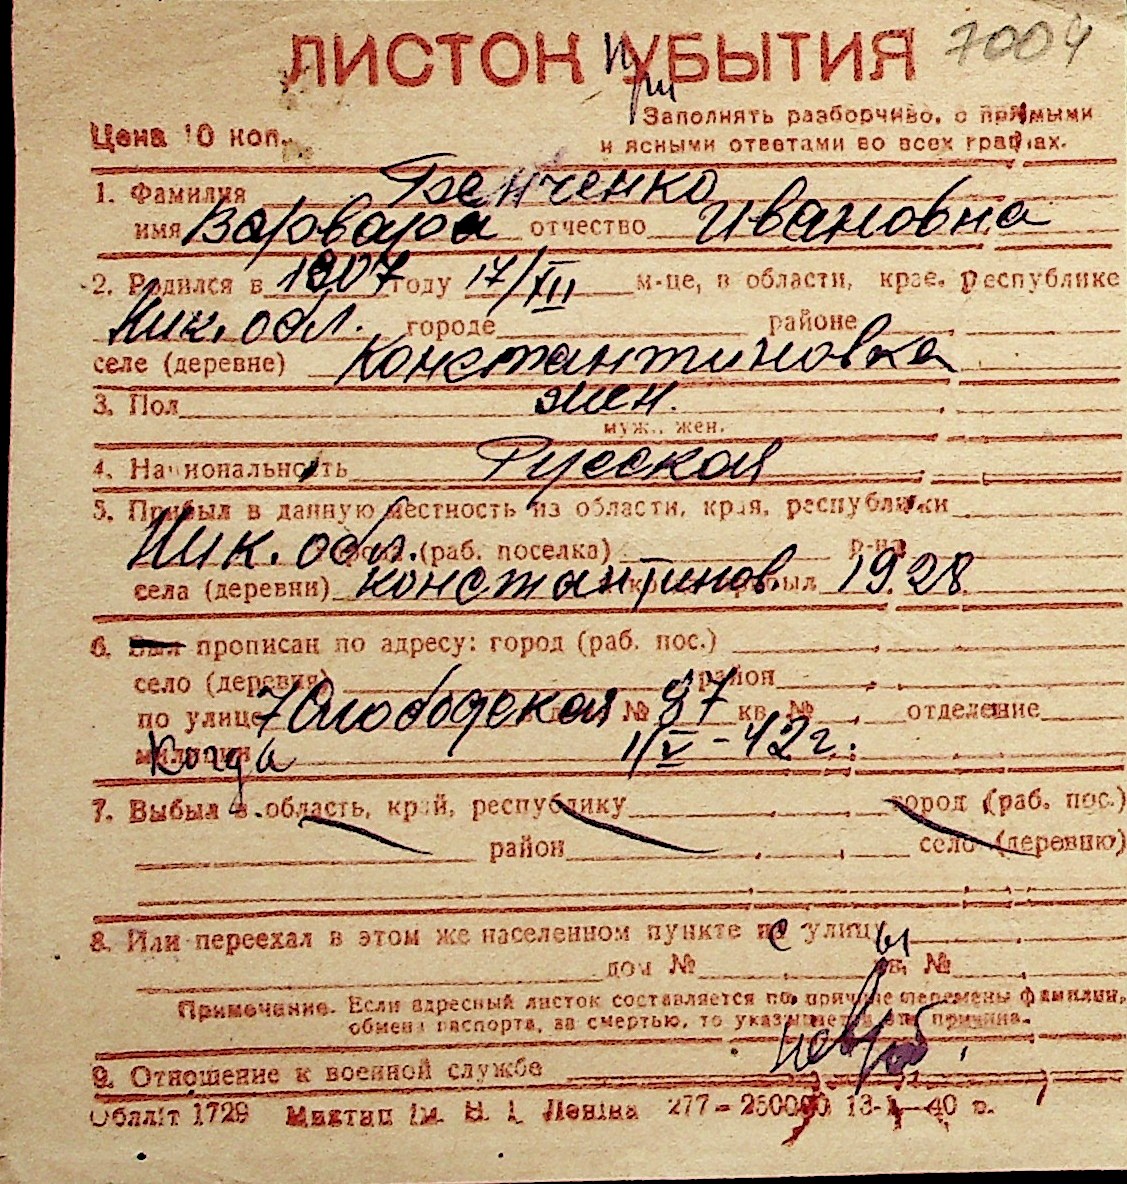 ЛИСТОК УБЫТИЯ 7004
при
Заполнять разборчиво, с прямыми
Цена 10 коп. и ясными ответами во всех графах.
1. Фамилия Бенченко
имя Варвара отчество Ивановна
2. Родился в 1907 году 17/XII м-це, в области, крае, республике
Ник. обл. городе районе
селе (деревне) Константиновка
3. Пол жен.
муж., жен.
4. Национальность Русская
5. Прибыл в данную местность из области, края, республики
Ник. обл. (раб. поселка) р-на
села (деревни) Константинов. прибыл 1928
6. Был прописан по адресу: город (раб. пос.)
село (деревня) район
по улице 7 Слободская № 87 кв. № отделение
милиции Когда 1/V-42 г.
7. Выбыл в область, край, республику город (раб. пос.)
район село (деревню)
8. Или переехал в этом же населенном пункте с улицы
дом № кв. №
Примечание. Если адресный листок составляется по причине перемены фамилии,
обмена паспорта, за смертью, то указывается эта причина.
9. Отношение к военной службе
Обллiт 1729 Миктип iм. В. I. Ленiна 277-250000 13-I-40 р.